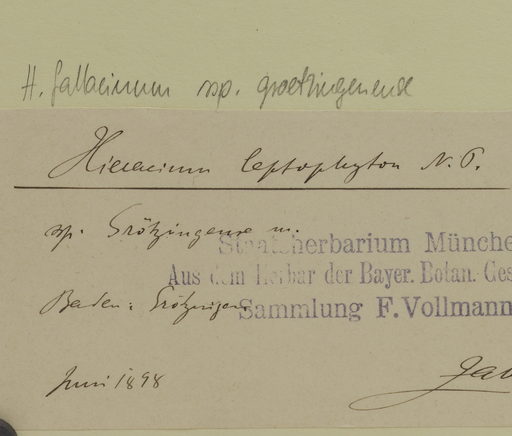 H. fallacinum ssp. groetzingense
Hieracium leptophyton N. P.
ssp. Grötzingense m.
Staatsherbarium Münche
Aus dem Herbar der Bayer. Botan. Ges
Baden: Grötzingen
Sammlung F. Vollmann
Juni 1898